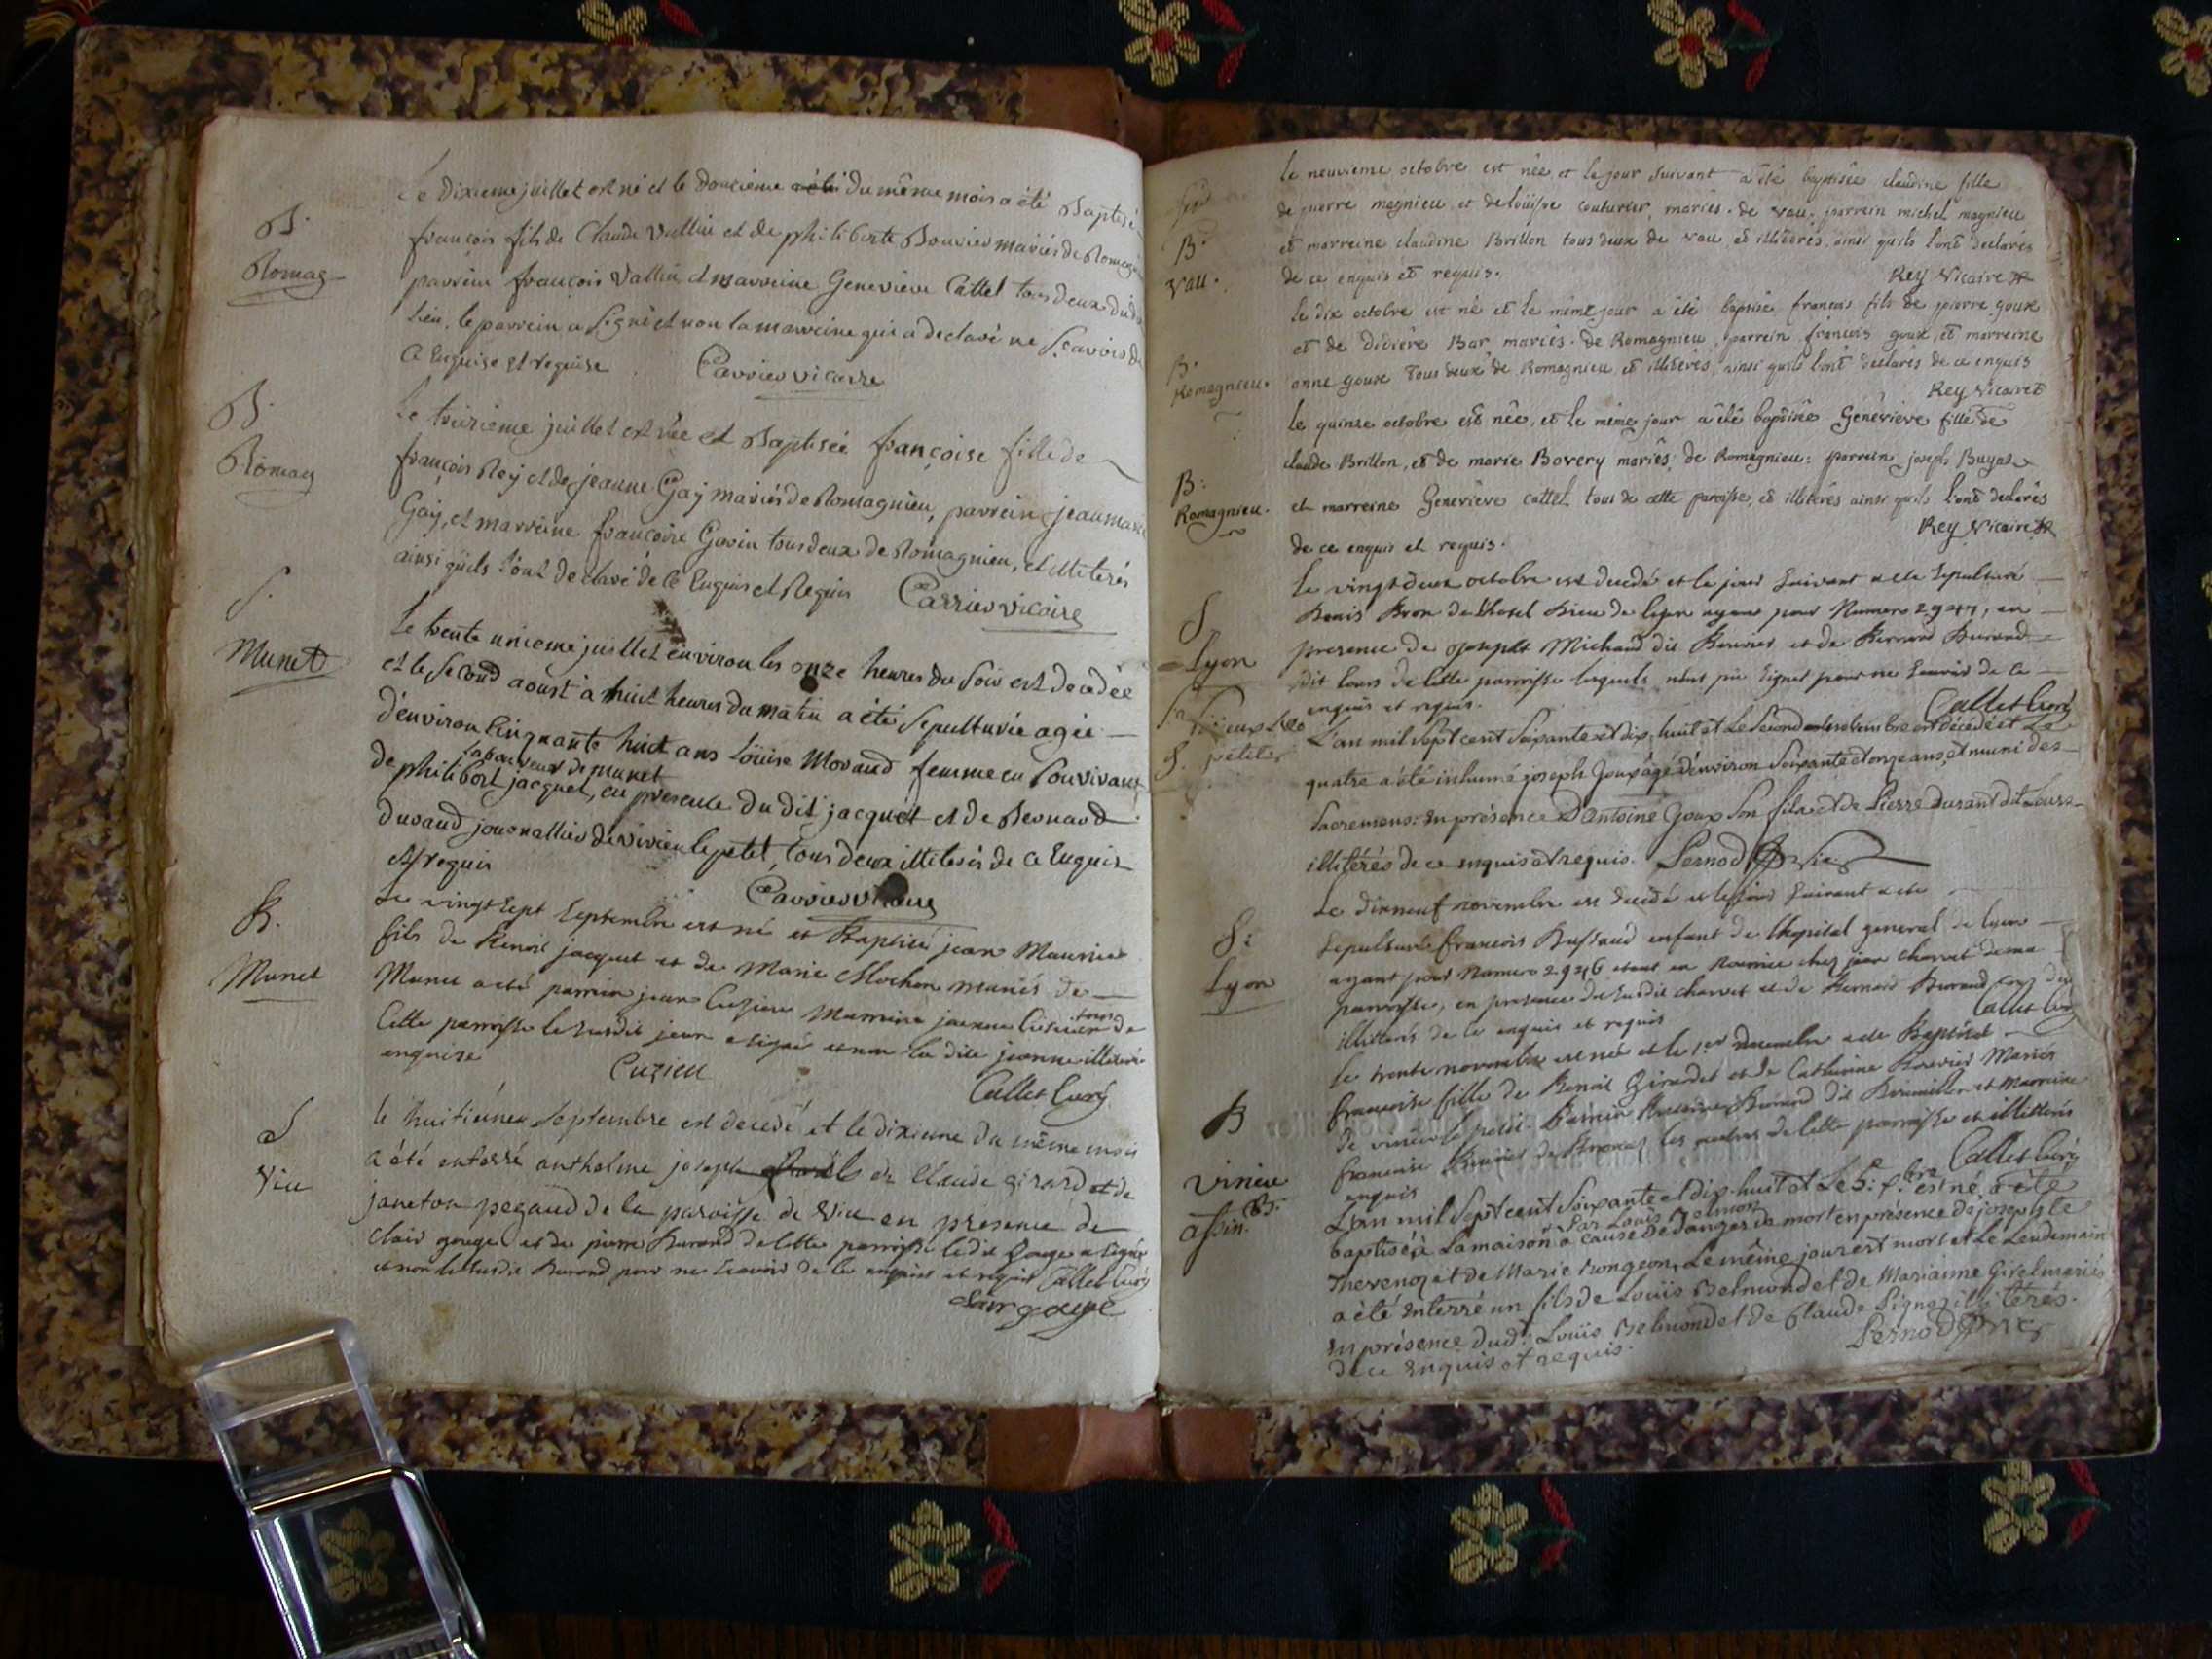 Le Dixieme juillet est né et le Douzieme du même mois a été Baptisé
B.
françois fils de Claude Vallin et de philiberte Bouvier mariés de Romagnieu
Romag
parrein françois Vallin et marreine Genevieve Cattel tous deux dudit
Lieu, le parrein a signé et non la marreine qui a declaré ne sçavoir de
ce Enquise et requise Carrier vicaire
B.
Le treizieme juillet est née et Baptisée françoise fille de
Romag
françois Rey et de jeanne Gay mariés de Romagnieu, parrein jean marie
Gay, et marreine françoise Govin tous deux de Romagnieu, et illiterés
ainsi qu'ils l'ont declaré de ce Enquis et Requis Carrier vicaire
S.
Le trente unieme juillet environ les onze heures du soir est decedée
Munet
et le second aoust a huit heures du matin a été sepulturée agée
d'environ Cinquante huit ans Loüise Morand femme en survivant
laboureur de munet
de philibert jacquet, en presence du dit jacquet et de Bernard
Durand journallier de virieu le petit, tous deux illiterés de ce Enquis
et requis
Carrier vicaire
B.
Le vingt sept Septembre est né et Baptisé jean Maurice
Munet
fils de Benoit jacquet et de Marie Mochon mariés de
Munet a été parrein jean Cuzieu Marraine jeanne
tous de
Cette parroisse le susdit jean a signé et non la dite jeanne illiterée
enquise
Cuzieu
Callet Curé
S
le huitiéme Septembre est decedé et le dixieme du même mois
Vieu
a été enterré anthelme joseph fils de Claude girard et de
janeton pegaud de la paroisse de Vieu en présence de
clair gouge et de pierre Durand de cette parroisse le dit gouge a signé
et non le susdit Durand pour ne scavoir de ce enquis et requis Callet Curé
Clair gouge
le neuvieme octobre est née et le jour suivant a été baptisée claudine fille
de pierre magnieu et de loüise couturier mariés de vau. parrein michel magnieu
B.
et marreine claudine Brillon tous deux de vau et illitérés, ainsi qu'ils l'ont declarés
vau.
de ce enquis et requis.
Rey Vicaire
le dix octobre est né et le même jour a été baptisé françois fils de pierre goux
et de didiére Bar mariés de Romagnieu, parrein françois goux, et marreine
B.
Romagnieu.
anne goux tous deux de Romagnieu et illiterés, ainsi qu'ils l'ont declarés de ce enquis
Rey Vicaire
le quinse octobre est née, et le même jour a été baptisée Genéviève fille de
claude Brillon, et de marie Bovery mariés de Romagnieu: parrein joseph Bugat
B:
Romagnieu.
et marreine Genévieve cattel tous de cette paroisse, et illiterés ainsi qu'ils l'ont declarés
Rey Vicaire
de ce enquis et requis.
Le vingt deux octobre est decedé et le jour suivant a été sepulturé
S
Denis Bron de l'hotel Dieu de lyon ayant pour Numero, en
Lyon
presence de joseph Michaud dit Bouvier et de Bernard Durand
dit lours de cette parroisse lesquels n'ont pu signer pour ne scavoir de ce
enquis et requis.
Callet Curé
Virieux Le
petit
S.
L'an mil sept cent soixante et dix huit et Le second est décédé et Le
quatre a été inhumé joseph Goux âgé d'environ soixante et onze ans, et muni des
sacremens: en présence d'Antoine Goux son fils et de Pierre Durant dit Lours
illitérés de ce enquis et requis. Pernod
Le dixneuf novembre est decedé et le jour suivant a été
S:
sepulturé francois Bussaud enfant de l'hopital general de lyon
Lyon
ayant pour Numero 2926 etant en nourrice chez jean charvet de ma
parroisse, en presence du susdit charvet et de Bernard Durand tous deux
illitterés de ce enquis et requis
Callet Curé
le trente novembre est née et le 1er decembre a été Baptisée
B
francoise fille de Benoit Girardet et de Catherine Bouvier Mariés
virieu
de virieu le petit. Parrein Durand dit et Marraine
francoise les autres de cette parroisse et illitterés
enquis
Callet Curé
B.
assin.
L'an mil sept cent soixante et dix-huit et Le 5e Xbre est né, a été
par Louis Belmon
baptisé à Lamaison à cause de danger de mort en présence de joseph te
Thevenoz et de Marie Rongeon, Le même jour est mort et Le Lendemain
a été Enterré un fils de Louïs Belmond et de Marianne Girel mariés
en présence dud: Louïs Belmond et de Claude Lignoz illitérés.
de ce Enquis et requis.
Pernod